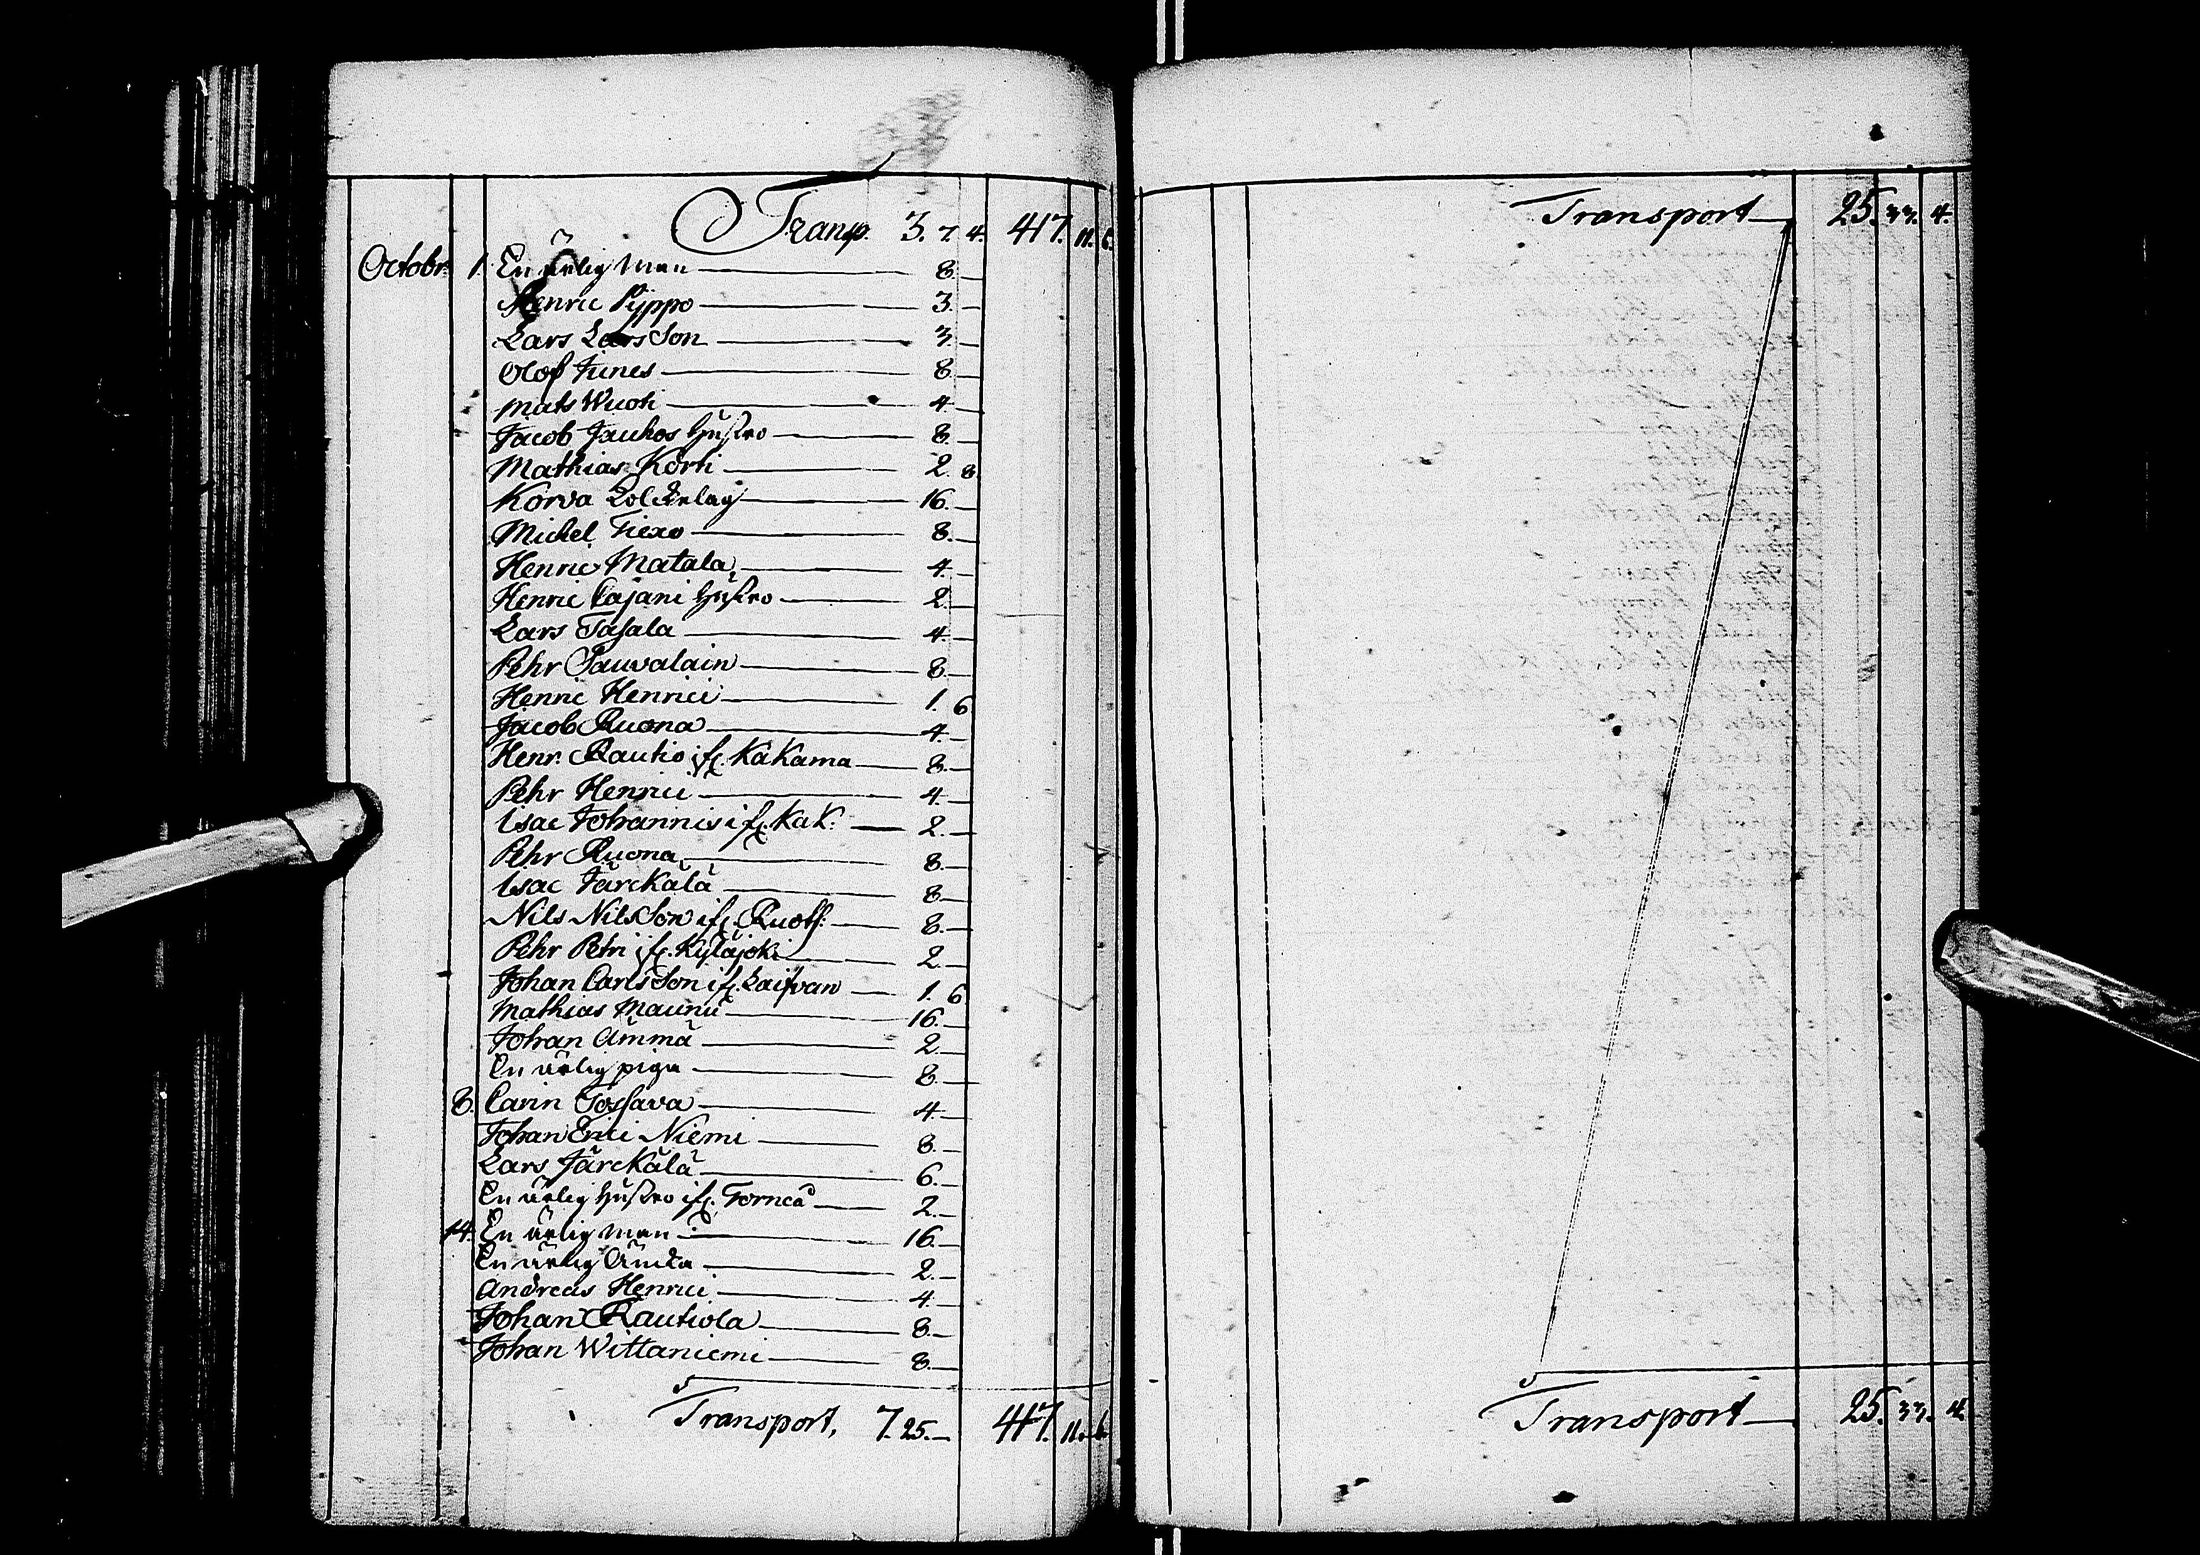 Transp. 3. 7. 4. 417. 11. 6.
Octobr. 1. En ärlig Man 8.
Henric Pyppo 3.
Lars LarsSon 3.
Olof Junes 8.
Mats Wuoti 4.
Jacob Jaukos Hustro 8.
Mathias Körti 2. 8.
Korva Bolag 16.
Michel Fiexo 8.
Henric Matala 4.
Henric Cajani Hustro 2.
Lars Tasala 4.
Pehr Pauvalain 8.
Henric Henrici 1. 6
Jacob Ruona 4.
Henr. Rautio ifr. Kakama 8.
Pehr Henrici 4.
Isac Johannis ifr. Kak. 2.
Pehr Ruona 8.
Isac Järckälä 8.
Nils NilsSon ifr. Ruots. 8.
Pehr Petri ifr. Kyläjoki 2.
Johan CarlsSon ifr. Laifvan 1. 6
Mathias Maunu 16.
Johan Ämmä 2.
En ärlig piga 8.
8. Carin Tossava 4.
Johan Erici Niemi 8.
Lars Järckälä 6.
En ärlig Hustro ifr. Torneå 2.
14. En ärlig man 16.
En ärlig Änka 2.
Andreas Henrici 4.
Johan Rautiola 8.
Johan Wittaniemi 8.
Transport, 7. 25. 417. 11. 6.
Transport 25. 33. 4.
Transport 25. 33. 4.